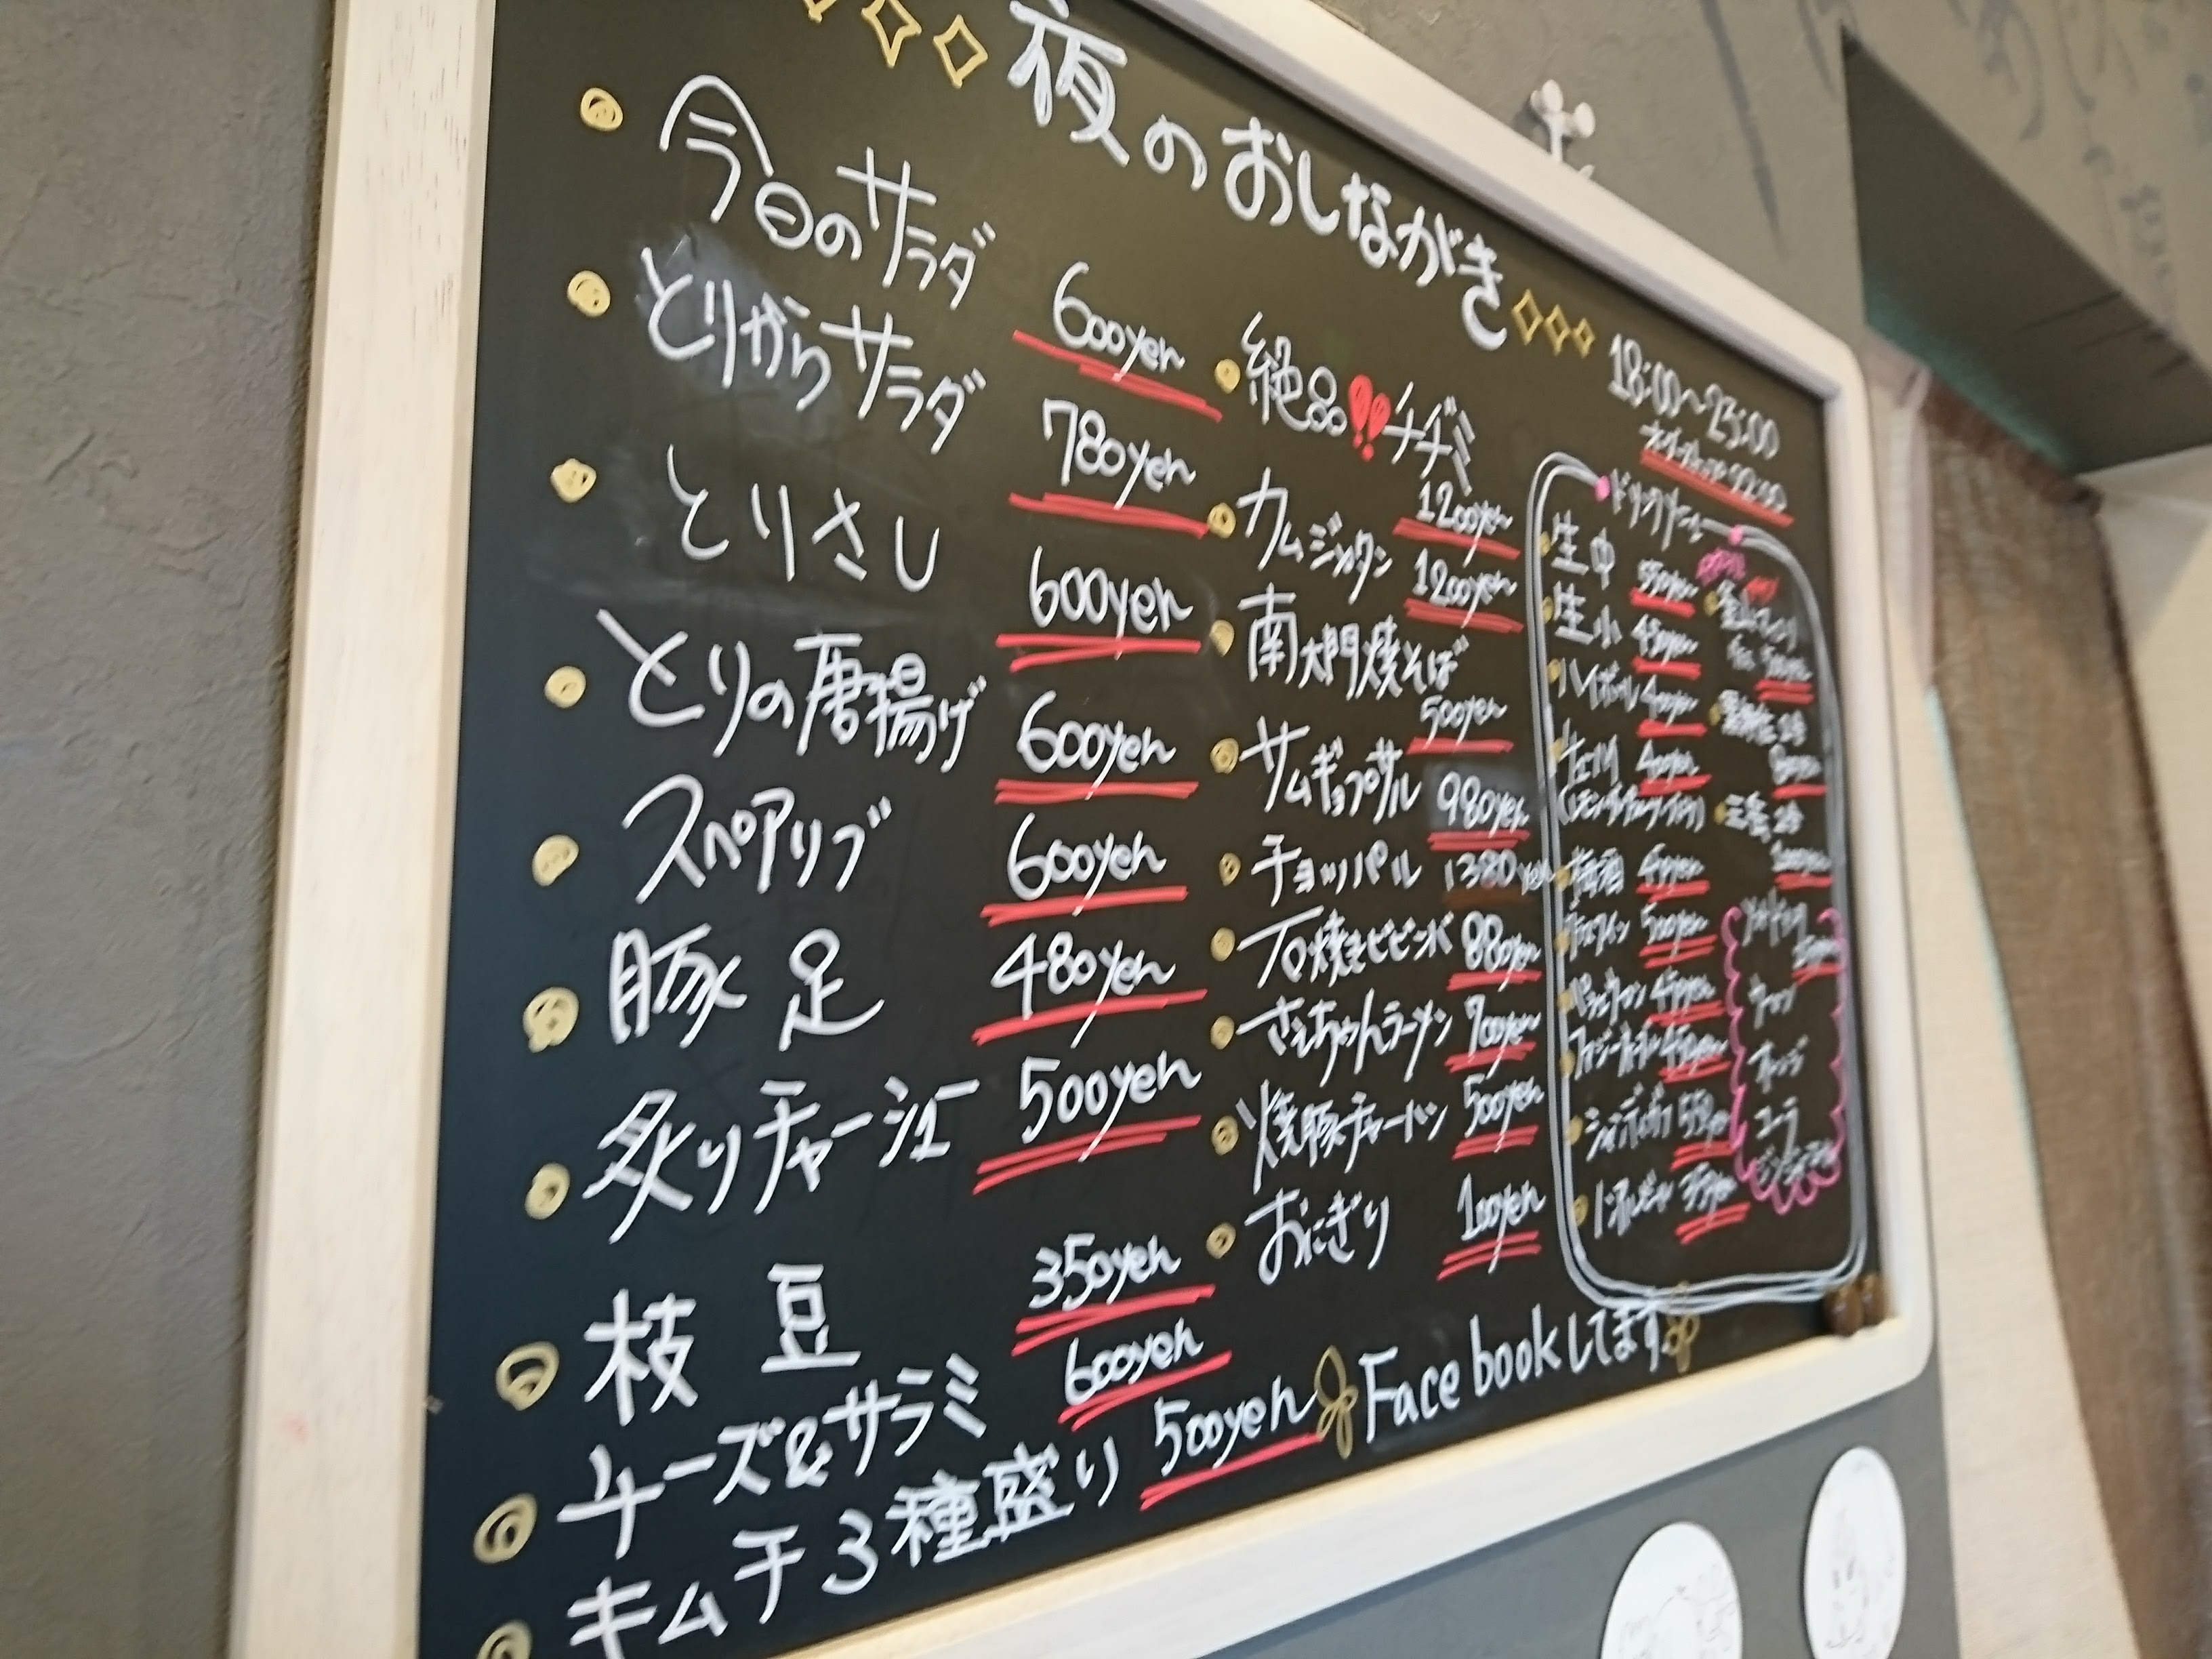 夜のおしながき
18:00〜23:00
今日のサラダ 600yen
とりからサラダ 780yen
とりさし 600yen
とりの唐揚げ 600yen
スペアリブ 600yen
豚足 480yen
炙りチャーシュー 500yen
枝豆 350yen
チーズ&サラミ 600yen
キムチ3種盛り 500yen
絶品!!チヂミ 1200yen
カムジャタン 1200yen
南大門焼そば 500yen
サムギョプサル 980yen
チョッパル 1380yen
石焼きビビンバ 880yen
さえちゃんラーメン 700yen
焼豚チャーハン 500yen
おにぎり 100yen
ドリンクメニュー
生中 550yen
生小 450yen
ハイボール 400yen
400yen
梅酒
500yen
コーラ
Face bookしてます